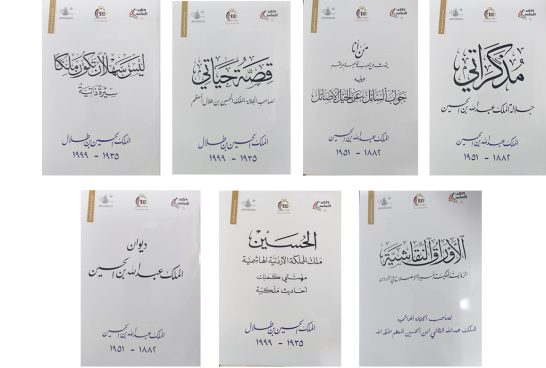 ليس سهلا أن تكون ملكا
سيرة ذاتية
الملك الحسين بن طلال
١٩٣٥ - ١٩٩٩
قصة حياتي
لصاحب الجلالة الملك الحسين بن طلال المعظم
الملك الحسين بن طلال
١٩٣٥ - ١٩٩٩
من أنا
جواب السائل عن الخيل الأصائل
الملك عبدالله بن الحسين
١٨٨٢ - ١٩٥١
مذكراتي
جلالة الملك عبدالله بن الحسين
الملك عبدالله بن الحسين
١٨٨٢ - ١٩٥١
ديوان
الملك عبدالله بن الحسين
الملك عبدالله بن الحسين
١٨٨٢ - ١٩٥١
الحسين
ملك المملكة الأردنية الهاشمية
مهنتي كملك
أحاديث ملكية
الملك الحسين بن طلال
١٩٣٥ - ١٩٩٩
الأوراق النقاشية
لصاحب الجلالة الهاشمية
الملك عبدالله الثاني ابن الحسين المعظم حفظه الله